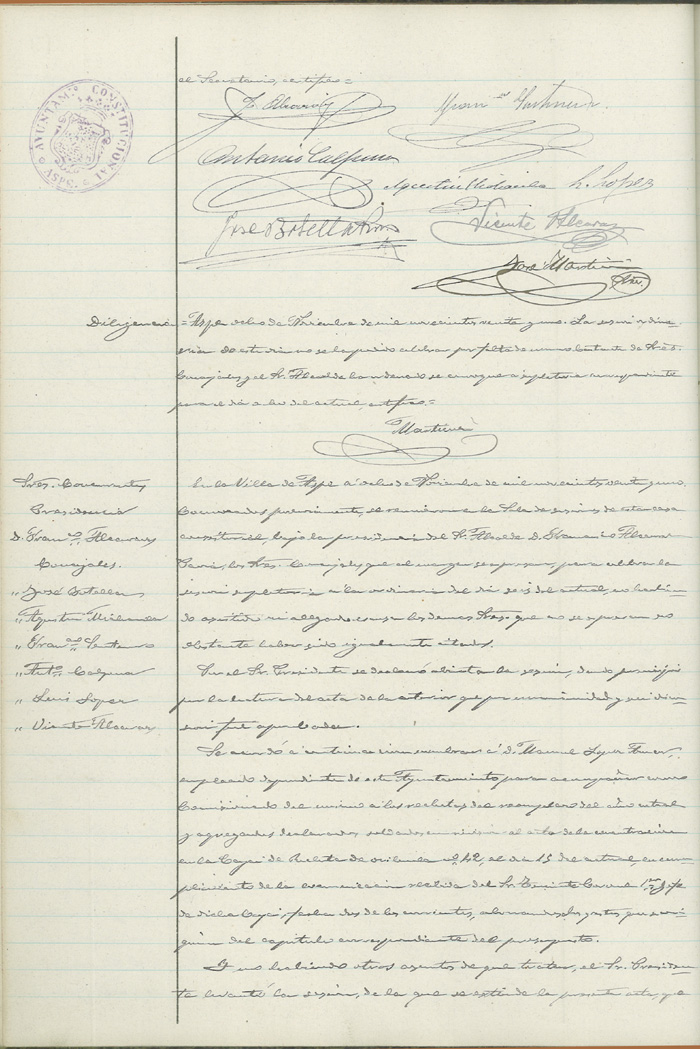 el Secretario, certifico =
AYUNTAM.to CONSTITUCIONAL
ASPE
Antonio Calpena
L. López
José Botella
Vicente Alcaraz
José Martínez
Srio.
Diligencia = Aspe ocho de Noviembre de mil novecientos veinte y uno. La sesión ordina-
ria de este día no se ha podido celebrar por falta de número bastante de Sres.
Concejales y el Sr. Alcalde la ordenado se convoque a supletoria correspondiente
para el día del actual, certifico =
Martínez
Sres. Concurrentes
Presidencia
D. Fran.co Alcaraz
Concejales.
„ José Botella
„ Agustín Miralles
„ Fran.co
„ Ant.o Calpena
„ Luis Lopez
„ Vicente Alcaraz
En la Villa de Aspe a ocho de Noviembre de mil novecientos veinte y uno.
Convocados previamente, se reunieron en la Sala de sesiones de esta casa
consistorial, bajo la presidencia del Sr. Alcalde D. Francisco Alcaraz
los Sres. Concejales que al margen se expresan, para celebrar la
sesión supletoria a la ordinaria del día seis del actual, no habien-
do asistido ni alegado causa los demas Sres. que no se expresan no
obstante haber sido igualmente citados.
Por el Sr. Presidente se declaró abierta la sesión, dando principio
por la lectura del acta de la anterior que por unanimidad y sin discu-
sion fué aprobada.
Se acordó a continuacion nombrar a D. Manuel Lopez
empleado dependiente de este Ayuntamiento para acompañar como
Comisionado del mismo a los reclutas del reemplazo del año actual
y agregados declarados soldados en revision al acto de la concentración
en la Caja de Recluta de Orihuela nº 42, el día 15 del actual, en cum-
plimiento de la comunicacion recibida del Sr. Teniente Coronel 1er Jefe
de dicha Caja, fecha dos de los corrientes, abonandosele los gastos que
del capítulo correspondiente del presupuesto.
Y no habiendo otros asuntos de que tratar, el Sr. Presiden-
te levantó la sesión, de la que se extiende la presente acta, que